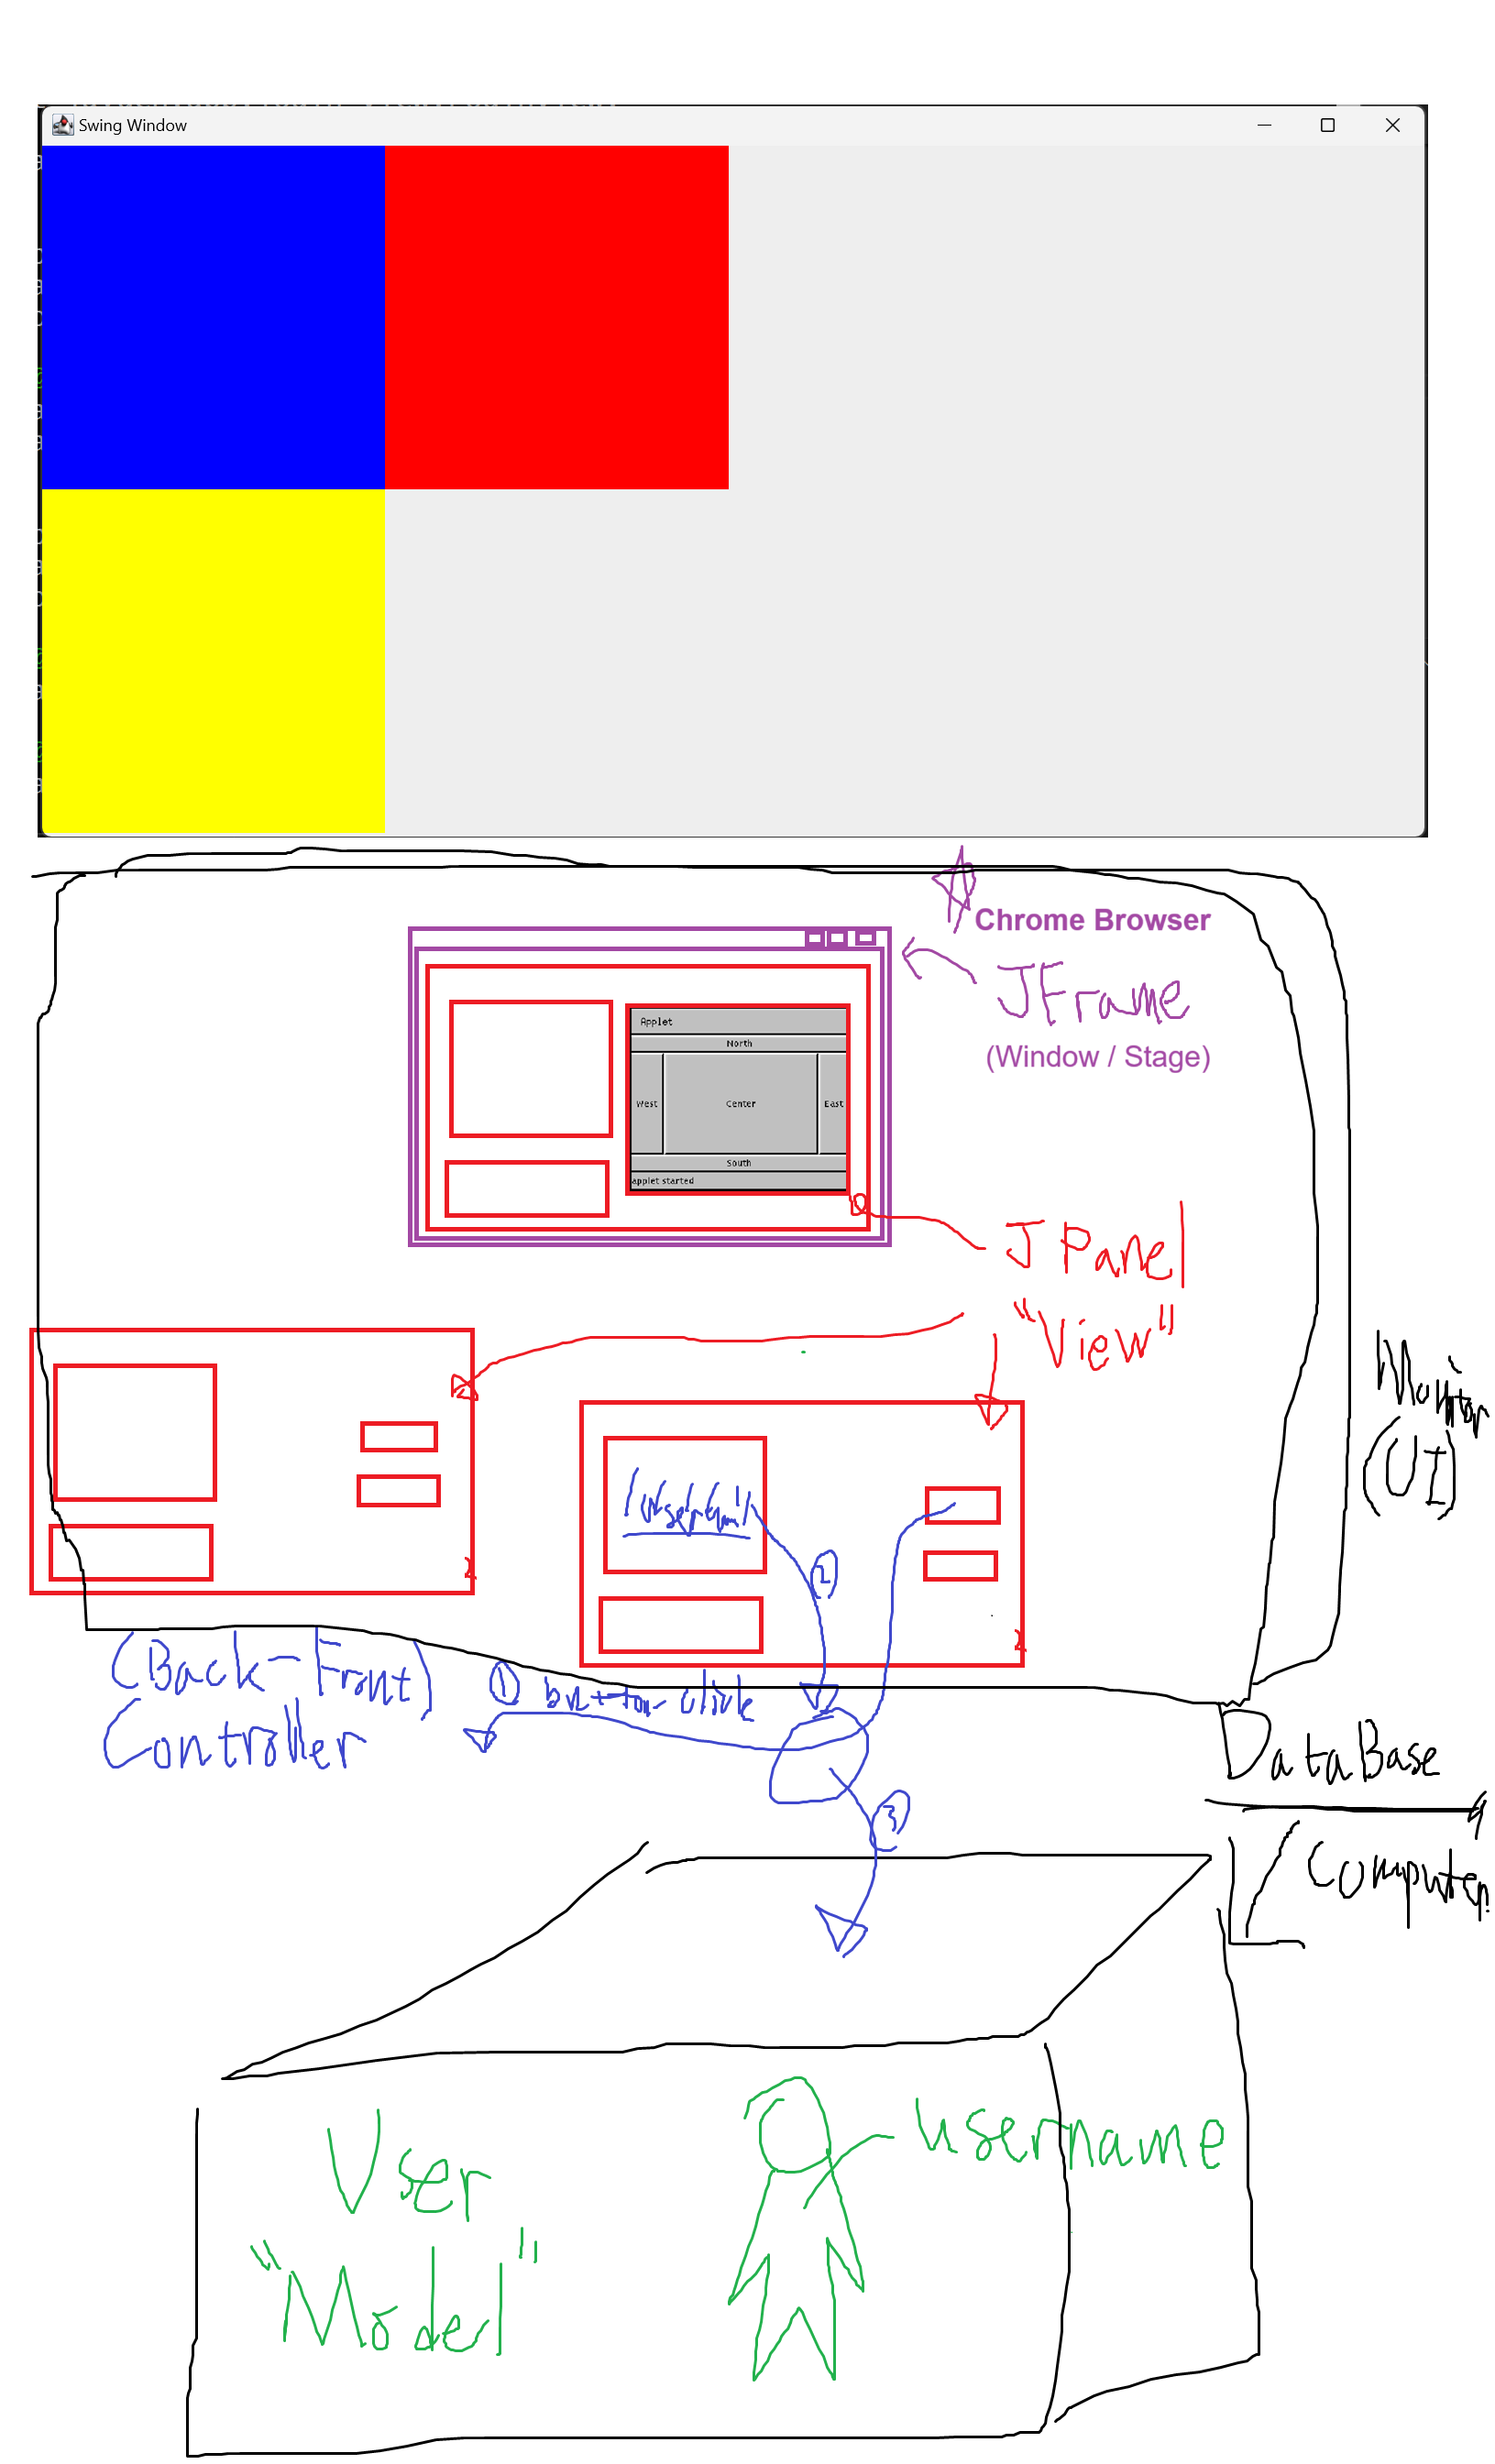 Swing Window
Chrome Browser
JFrame
(Window / Stage)
Applet
North
West
Center
East
South
applet started
JPanel
"View"
Monitor
(UI)
②
(Back-Front)
Controller
① button click
③
DataBase
/ Computer
User
"Model"
username